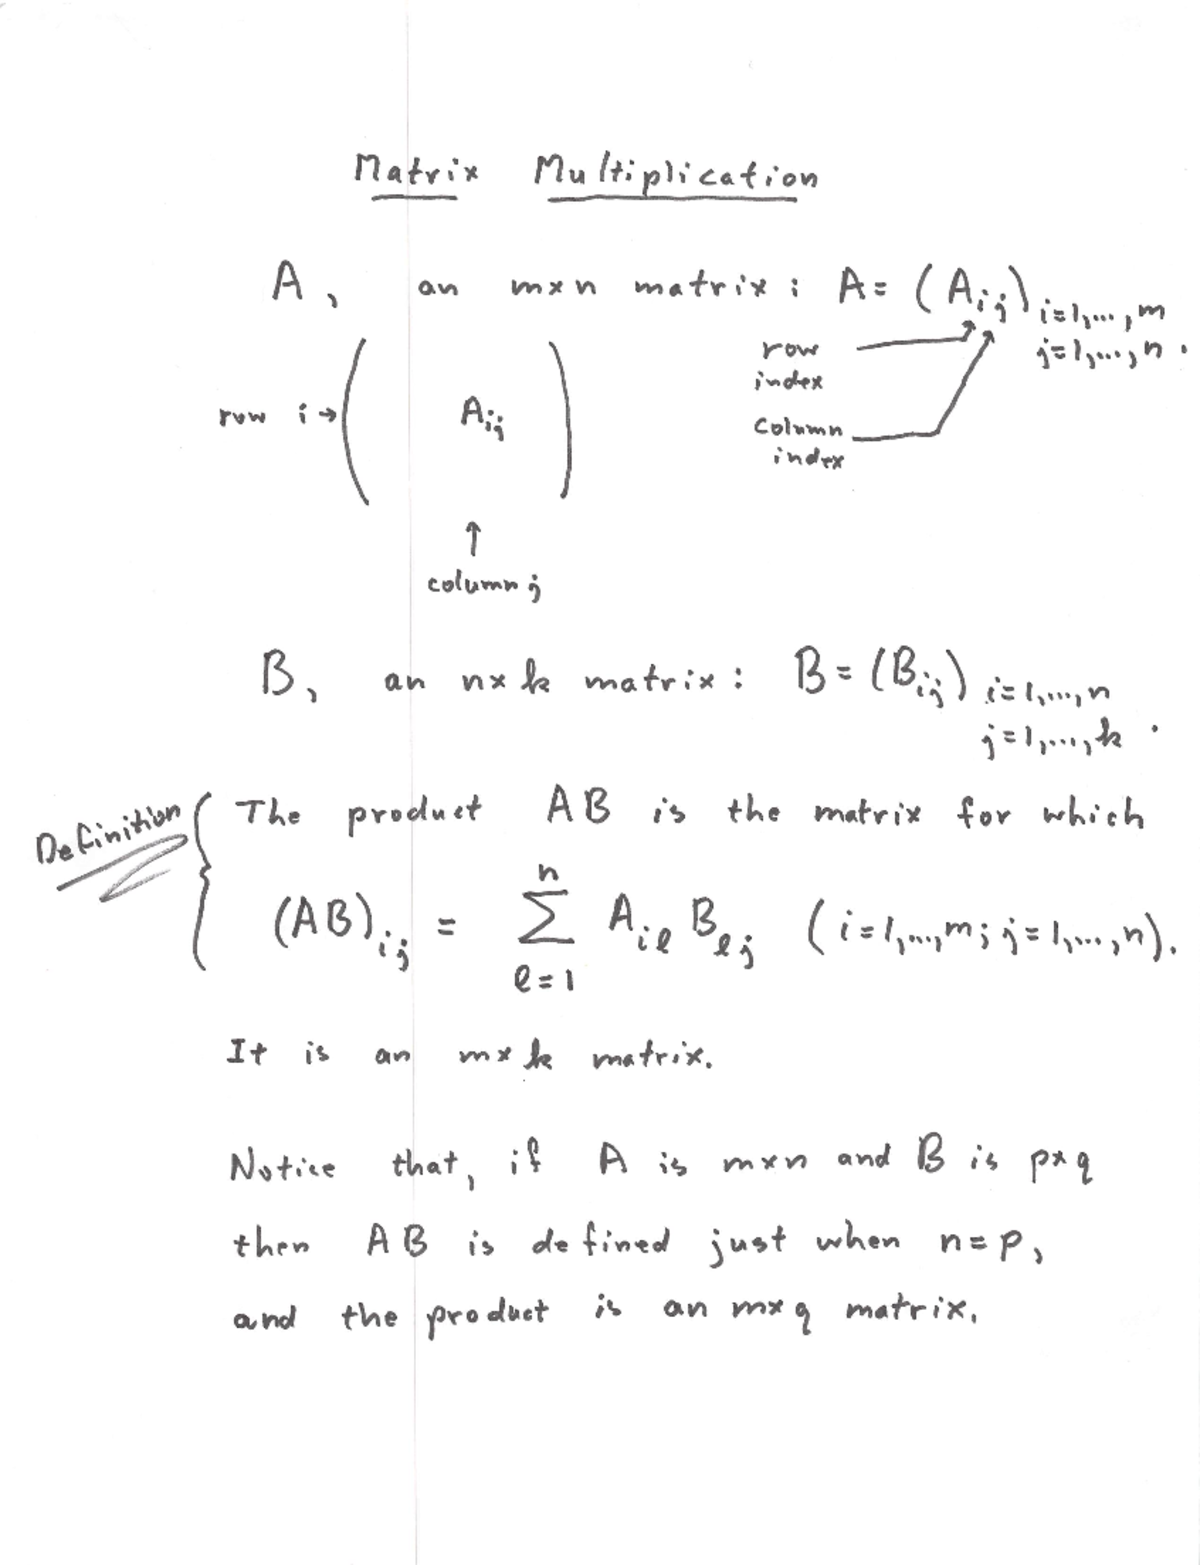 Matrix Multiplication
A, an m×n matrix: A = (A_ij) i=1,...,m
j=1,...,n.
row index
column index
row i → ( A_ij )
↑
column j
B, an n×k matrix: B = (B_ij) i=1,...,n
j=1,...,k.
Definition { The product AB is the matrix for which
(AB)_ij = Σ_{ℓ=1}^{n} A_iℓ B_ℓj (i=1,...,m; j=1,...,n).
It is an m×k matrix.
Notice that, if A is m×n and B is p×q
then AB is defined just when n=p,
and the product is an m×q matrix.